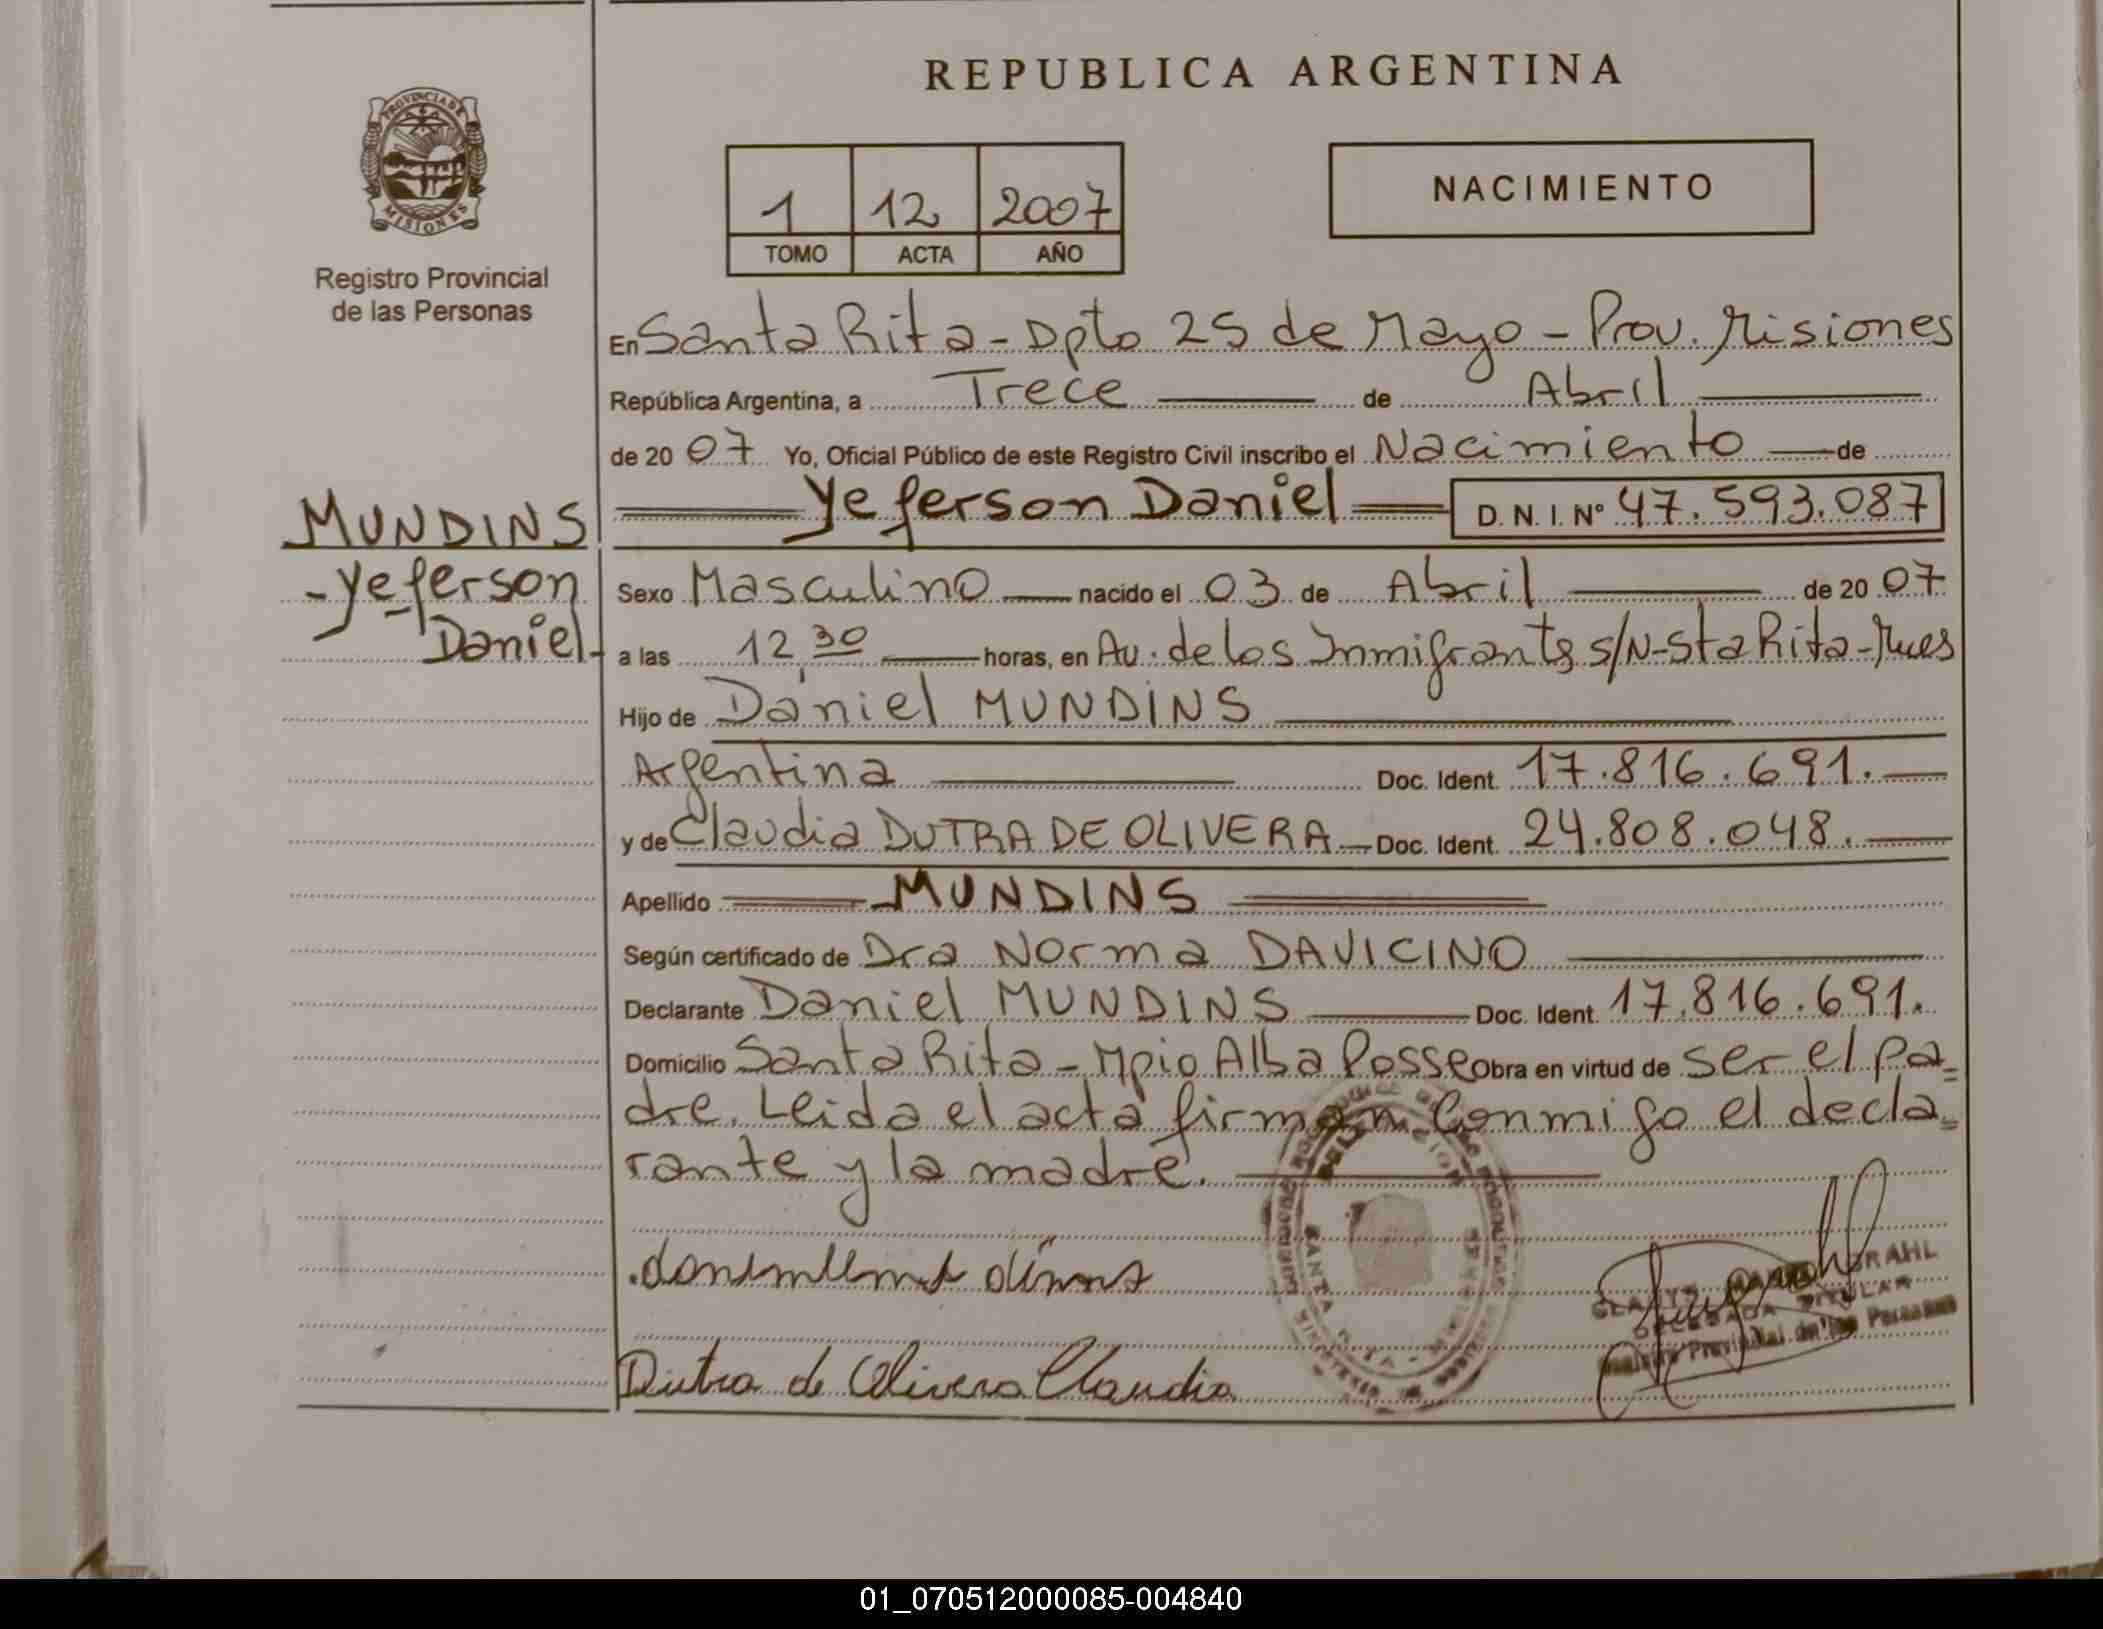 REPUBLICA ARGENTINA
PROVINCIA DE
MISIONES
Registro Provincial
de las Personas
1 12 2007
TOMO ACTA AÑO
NACIMIENTO
En Santa Rita - Dpto 25 de Mayo - Prov. Misiones
República Argentina, a Trece de Abril
de 20 07 Yo, Oficial Público de este Registro Civil inscribo el Nacimiento de
Yeferson Daniel D. N. I. Nº 47.593.087
MUNDINS
- Yeferson
Daniel -
Sexo Masculino nacido el 03 de Abril de 20 07
a las 12,30 horas, en Av. de los Inmigrantes s/N - Sta Rita - Mnes
Hijo de Daniel MUNDINS
Argentina Doc. Ident. 17.816.691.
y de Claudia DUTRA DE OLIVERA Doc. Ident. 24.808.048.
Apellido MUNDINS
Según certificado de Dra Norma DAVICINO
Declarante Daniel MUNDINS Doc. Ident. 17.816.691.
Domicilio Santa Rita - Mpio Alba Posse Obra en virtud de ser el pa=
dre. Leida el acta firman conmigo el decla=
rante y la madre.
SANTA RITA
BRAHL
DELEGADA TITULAR
Registro Provincial de las Personas
Dutra de Olivera Claudia
01_070512000085-004840